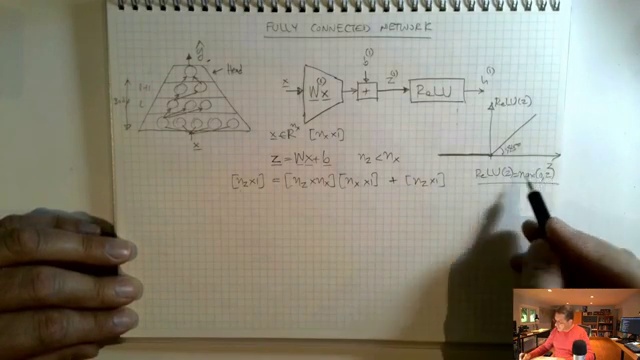 FULLY CONNECTED NETWORK
ŷ
Head
x
x
W x
(1)
+
b
(1)
z
(1)
ReLU
h
(1)
x ∈ R
[n_x x1]
z = Wx + b
n_z < n_x
[n_z x1] = [n_z x n_x] [n_x x1] + [n_z x1]
ReLU(z)
45°
z
ReLU(z) = max(0, z)